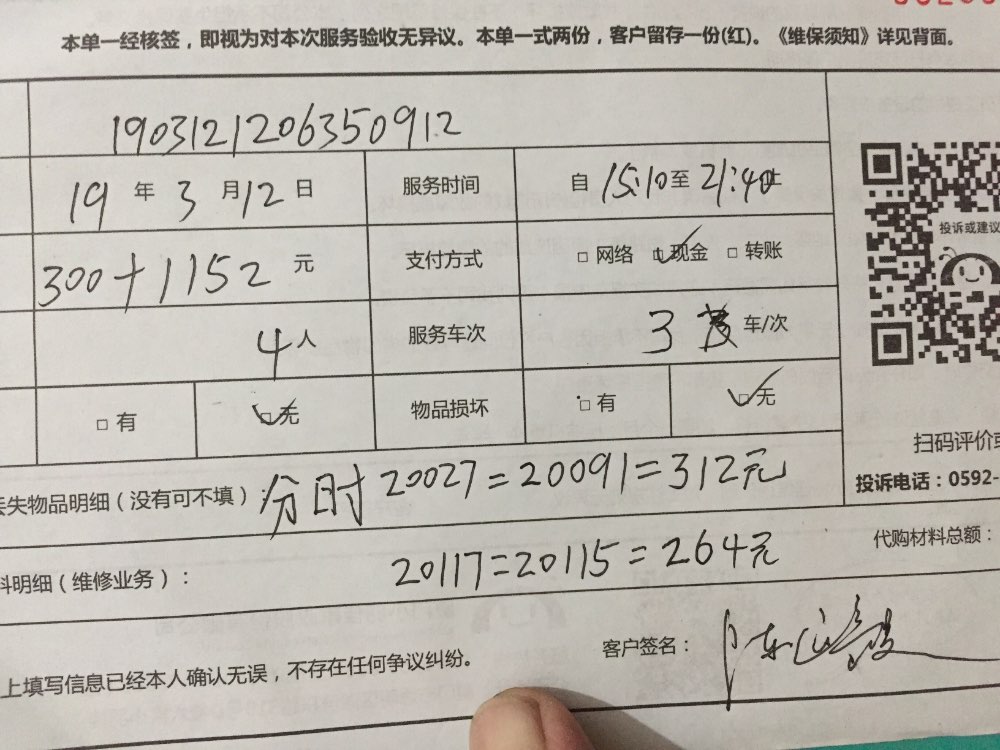 本单一经核签，即视为对本次服务验收无异议。本单一式两份，客户留存一份(红)。《维保须知》详见背面。
190312120635091.2
19 年 3 月 12 日 服务时间 自 15:10 至 21:40 止
300+1152 元 支付方式 □ 网络 ☑ 现金 □ 转账
4 人 服务车次 3 车/次
□ 有 ☑ 无 物品损坏 □ 有 ☑ 无
投诉或建议
扫码评价或
投诉电话：0592-
失物品明细（没有可不填）：分时 20027=20091=312元
料明细（维修业务）： 20117=20115=264元
代购材料总额：
上填写信息已经本人确认无误，不存在任何争议纠纷。 客户签名：